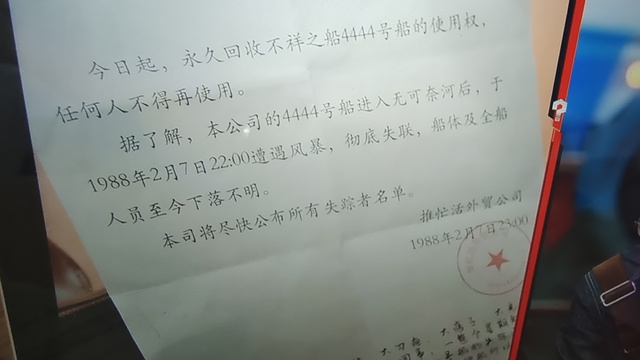 今日起，永久回收不祥之船4444号船的使用权，
任何人不得再使用。
据了解，本公司的4444号船进入无可奈河后，于
1988年2月7日22:00遭遇风暴，彻底失联，船体及全船
人员至今下落不明。
本司将尽快公布所有失踪者名单。
推忙活外贸公司
1988年2月7日23:00